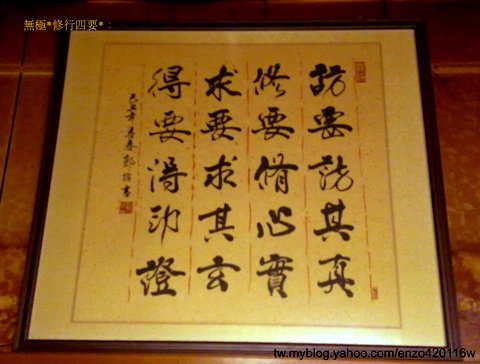 無極*修行四要*：
訪要訪其真
修要脩心實
求要求其玄
得要得印證
tw.myblog.yahoo.com/enzo420116w